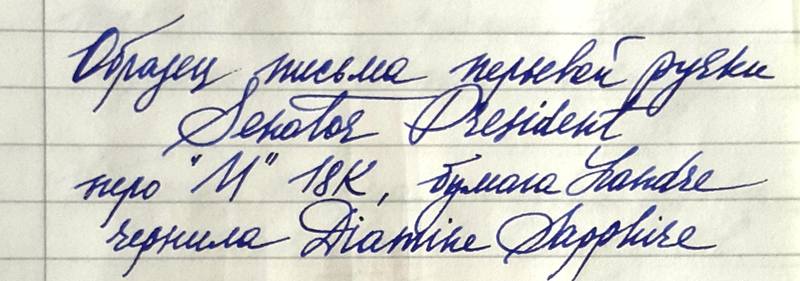 Образец письма перьевой ручки
Senator President
перо "М" 18К, бумага Landre
чернила Diamine Sapphire